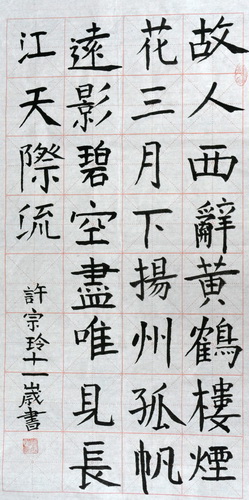 故人西辭黃鶴樓煙
花三月下揚州孤帆
遠影碧空盡唯見長
江天際流
許宗玲十一歲書